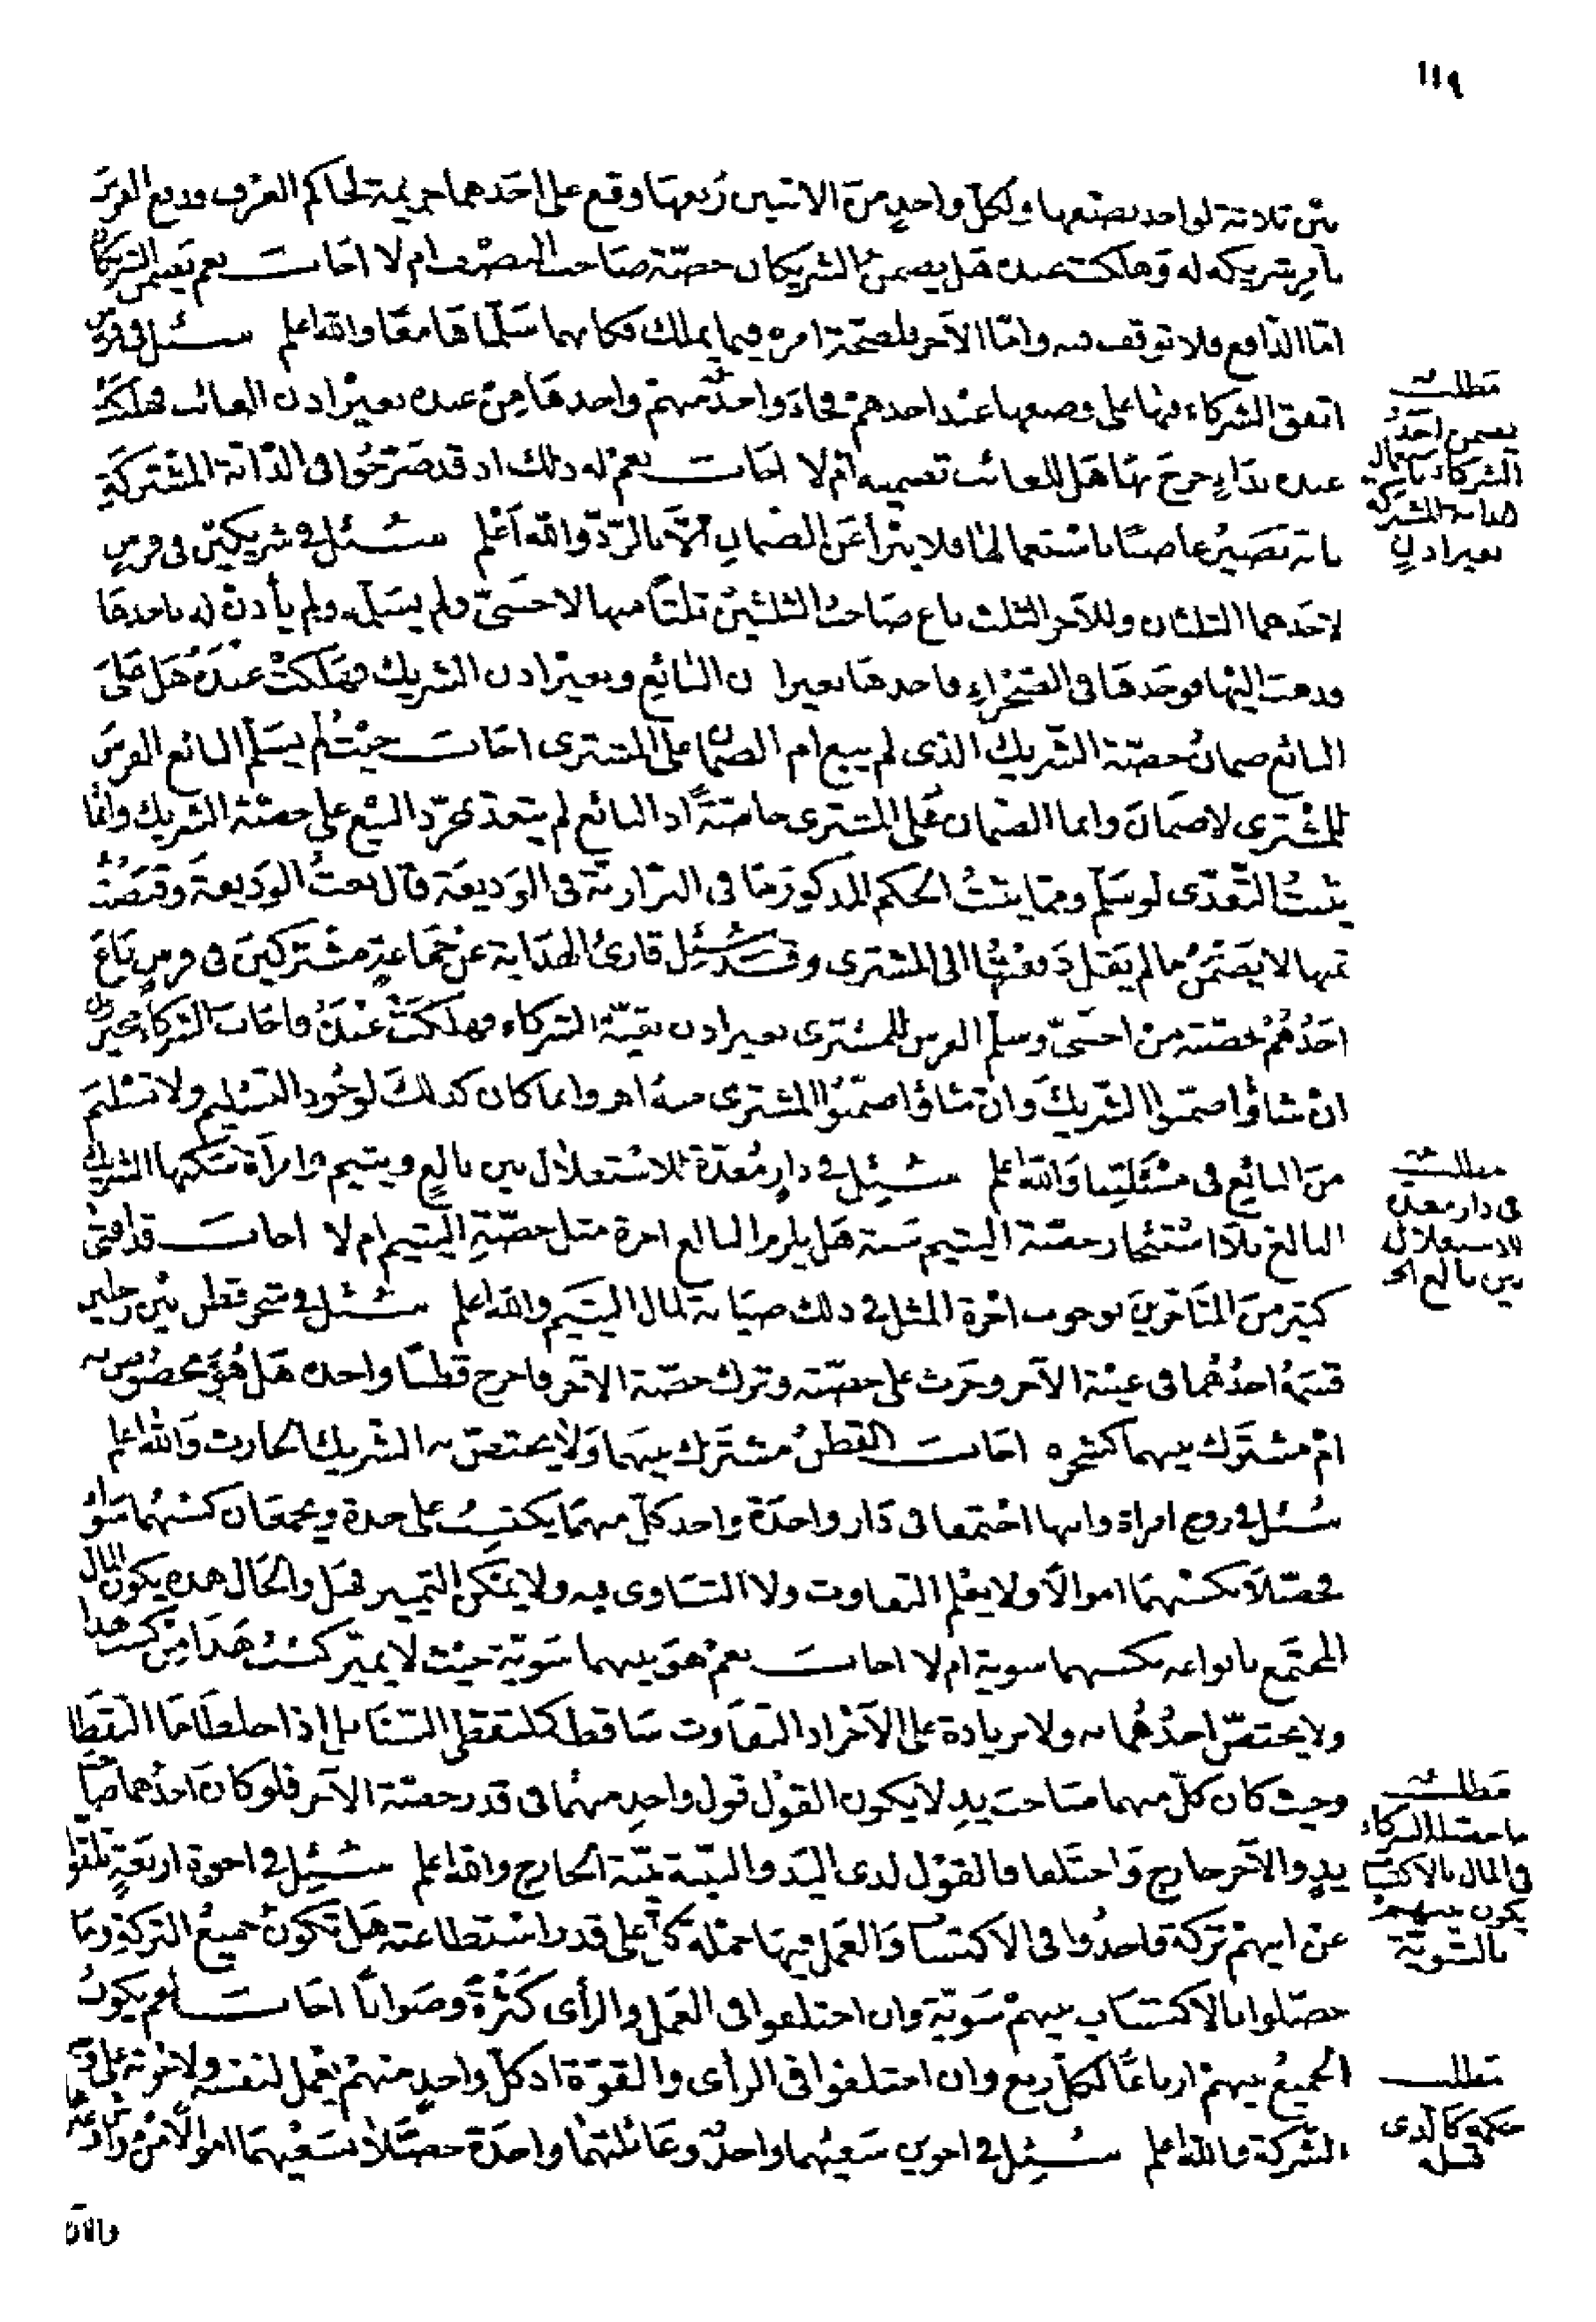 ١١٩
بين ثلاثة لواحد نصفها ولكل واحد من الاثنين ربعها وقع على احدهما جريمة لحاكم العرف ودفع الفرس
بأمر شريكه له وهلكت عنده هل يضمن الشريكان حصة صاحب النصف ام لا اجاب نعم يضمن الشريكان
امّا الدافع فلا توقف فيه وامّا الآخر فلصحة امره فيما يملك فكانهما سلّماها معًا والله اعلم سئل في فرس
اتفق الشركاء فيها على وضعها عند احدهم فجاء واحد منهم واخذها من عنده بغير اذن الغائب فهلكت
عنده بداء جرح بها هل للغائب تضمينه ام لا اجاب نعم له ذلك اذ قد صرّحوا في الدابّة المشتركة
بانه يصير غاصبًا باستعمالها فلا يبرأ عن الضمان الّا بالردّ والله اعلم سئل في شريكين في فرس
لاحدهما الثلثان وللآخر الثلث باع صاحب الثلثين ثلثًا منها لاجنبيّ ولم يسلّم ولم يأذن له باخذها
وذهب اليها فوجدها في الصحراء فاخذها بغير اذن البائع وبغير اذن الشريك فهلكت عنده هل على
البائع ضمان حصّة الشريك الذى لم يبع ام الضمان على المشترى اجاب حيث لم يسلّم البائع الفرس
للمشترى لا ضمان وانما الضمان على المشترى خاصّة اذ البائع لم يتعدّ بمجرّد البيع على حصّة الشريك وانما
يثبت التعدّى لو سلّم وممّا يثبت الحكم المذكور ما في البزازية في الوديعة قال بعت الوديعة وقبضت
ثمنها لا يضمن ما لم يقل دفعتها الى المشترى وقد سئل قارئ الهداية عن جماعة مشتركين في فرس باع
احدهم حصّته من اجنبيّ وسلّم الفرس للمشترى بغير اذن بقيّة الشركاء فهلكت عنده فاجاب الشركاء مخيرون
ان شاؤا ضمّنوا الشريك وان شاؤا ضمّنوا المشترى منه اهـ وانما كان كذلك لوجود التسليم ولا تسليم
من البائع في مسئلتنا والله اعلم سئل في دار معدّة للاستغلال بين بالغ ويتيم وامرأة سكنها الشريك
البالغ بلا استئجار حصّة اليتيم سنة هل يلزم البالغ اجرة مثل حصّة اليتيم ام لا اجاب قد افتى
كثير من المتأخرين بوجوب اجرة المثل في ذلك صيانة لمال اليتيم والله اعلم سئل في شجر قطن بين رجلين
قسمه احدهما في غيبة الآخر وحرث على حصّته وترك حصّة الآخر فاخرج قطنًا واحده هل هو مخصوص به
ام مشترك بينهما كشجره اجاب القطن مشترك بينهما ولا يختصّ به الشريك الحارث والله اعلم
سئل في زوج امرأة وابنها اجتمعا في دار واحدة واخذ كلّ منهما يكتسب على حدة ويجمعان كسبهما سواء
فحصّلا بكسبهما اموالًا ولا يعلم التفاوت ولا التساوى فيه ولا يمكن التمييز فهل والحال هذه يكون المال
المجتمع بانواعه بكسبهما سوية ام لا اجاب نعم هو بينهما سويّة حيث لا يميز كسب هذا من كسب هذا
ولا يختصّ احدهما به ولا بزيادة على الآخر اذ التفاوت ساقط كملتقطي السنابل اذا خلطا ما التقطا
وحيث كان كلّ منهما صاحب يد لا يكون القول قول واحد منهما في قدر حصّة الآخر فلو كان احدهما صاحب
يد والآخر خارج واختلفا فالقول لذى اليد والبيّنة بيّنة الخارج والله اعلم سئل في اخوة اربعة تلقوا
عن ابيهم تركة فاخذوا في الاكتساب والعمل فيها جملة كلّ على قدر استطاعته هل تكون جميع التركة وما
حصّلوا بالاكتساب بينهم سويّة وان اختلفوا في العمل والرأى كثرة وصوابًا اجاب نعم يكون
الجميع بينهم ارباعًا لكلّ ربع وان اختلفوا في الرأى والقوّة اذ كلّ واحد منهم يعمل لنفسه ولاخوته على وجه
الشركة والله اعلم سئل في اخوين سعيهما واحد وعائلتهما واحدة حصّلا بسعيهما اموالًا من
والآن
مطلب
يضمن احد
الشركاء باستعمال
الدابة المشتركة
بغير اذن
مطلب
في دار معدة
للاستغلال
بين بالغ الخ
مطلب
ما حصله الشركاء
في المال بالاكتساب
يكون بينهم
بالسويّة
مطلب
حكمه كالذى
قبله